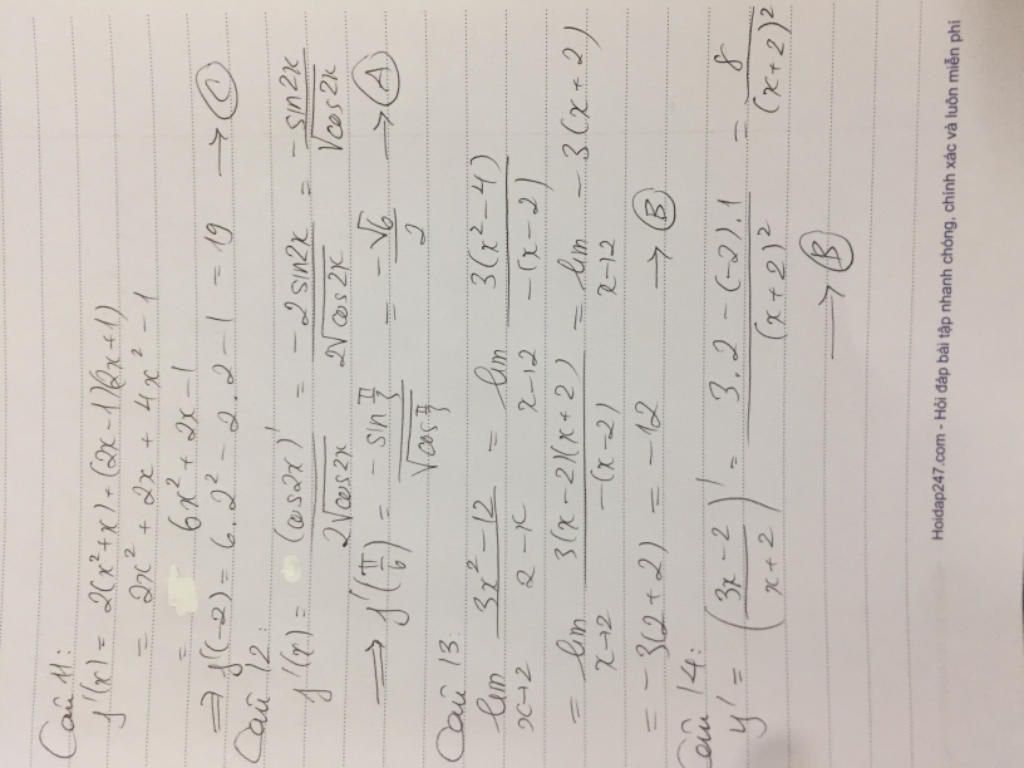 Câu 11:
f'(x) = 2(x² + x) + (2x - 1)(2x + 1)
= 2x² + 2x + 4x² - 1
= 6x² + 2x - 1
⇒ f'(-2) = 6.2² - 2.2 - 1 = 19 → (C)
Câu 12:
f'(x) = (cos2x)' / 2√cos2x = - 2sin2x / 2√cos2x = - sin2x / √cos2x
⇒ f'(π/6) = - sin π/3 / √cos π/3 = - √6 / 2 → (A)
Câu 13:
lim x→2 3x² - 12 / 2 - x = lim x→2 3(x² - 4) / -(x - 2)
= lim x→2 3(x - 2)(x + 2) / -(x - 2) = lim x→2 - 3(x + 2)
= - 3(2 + 2) = - 12 → (B)
Câu 14:
y' = (3x - 2 / x + 2)' = 3.2 - (-2).1 / (x + 2)² = 8 / (x + 2)²
→ (B)
Hoidap247.com - Hỏi đáp bài tập nhanh chóng, chính xác và luôn miễn phí